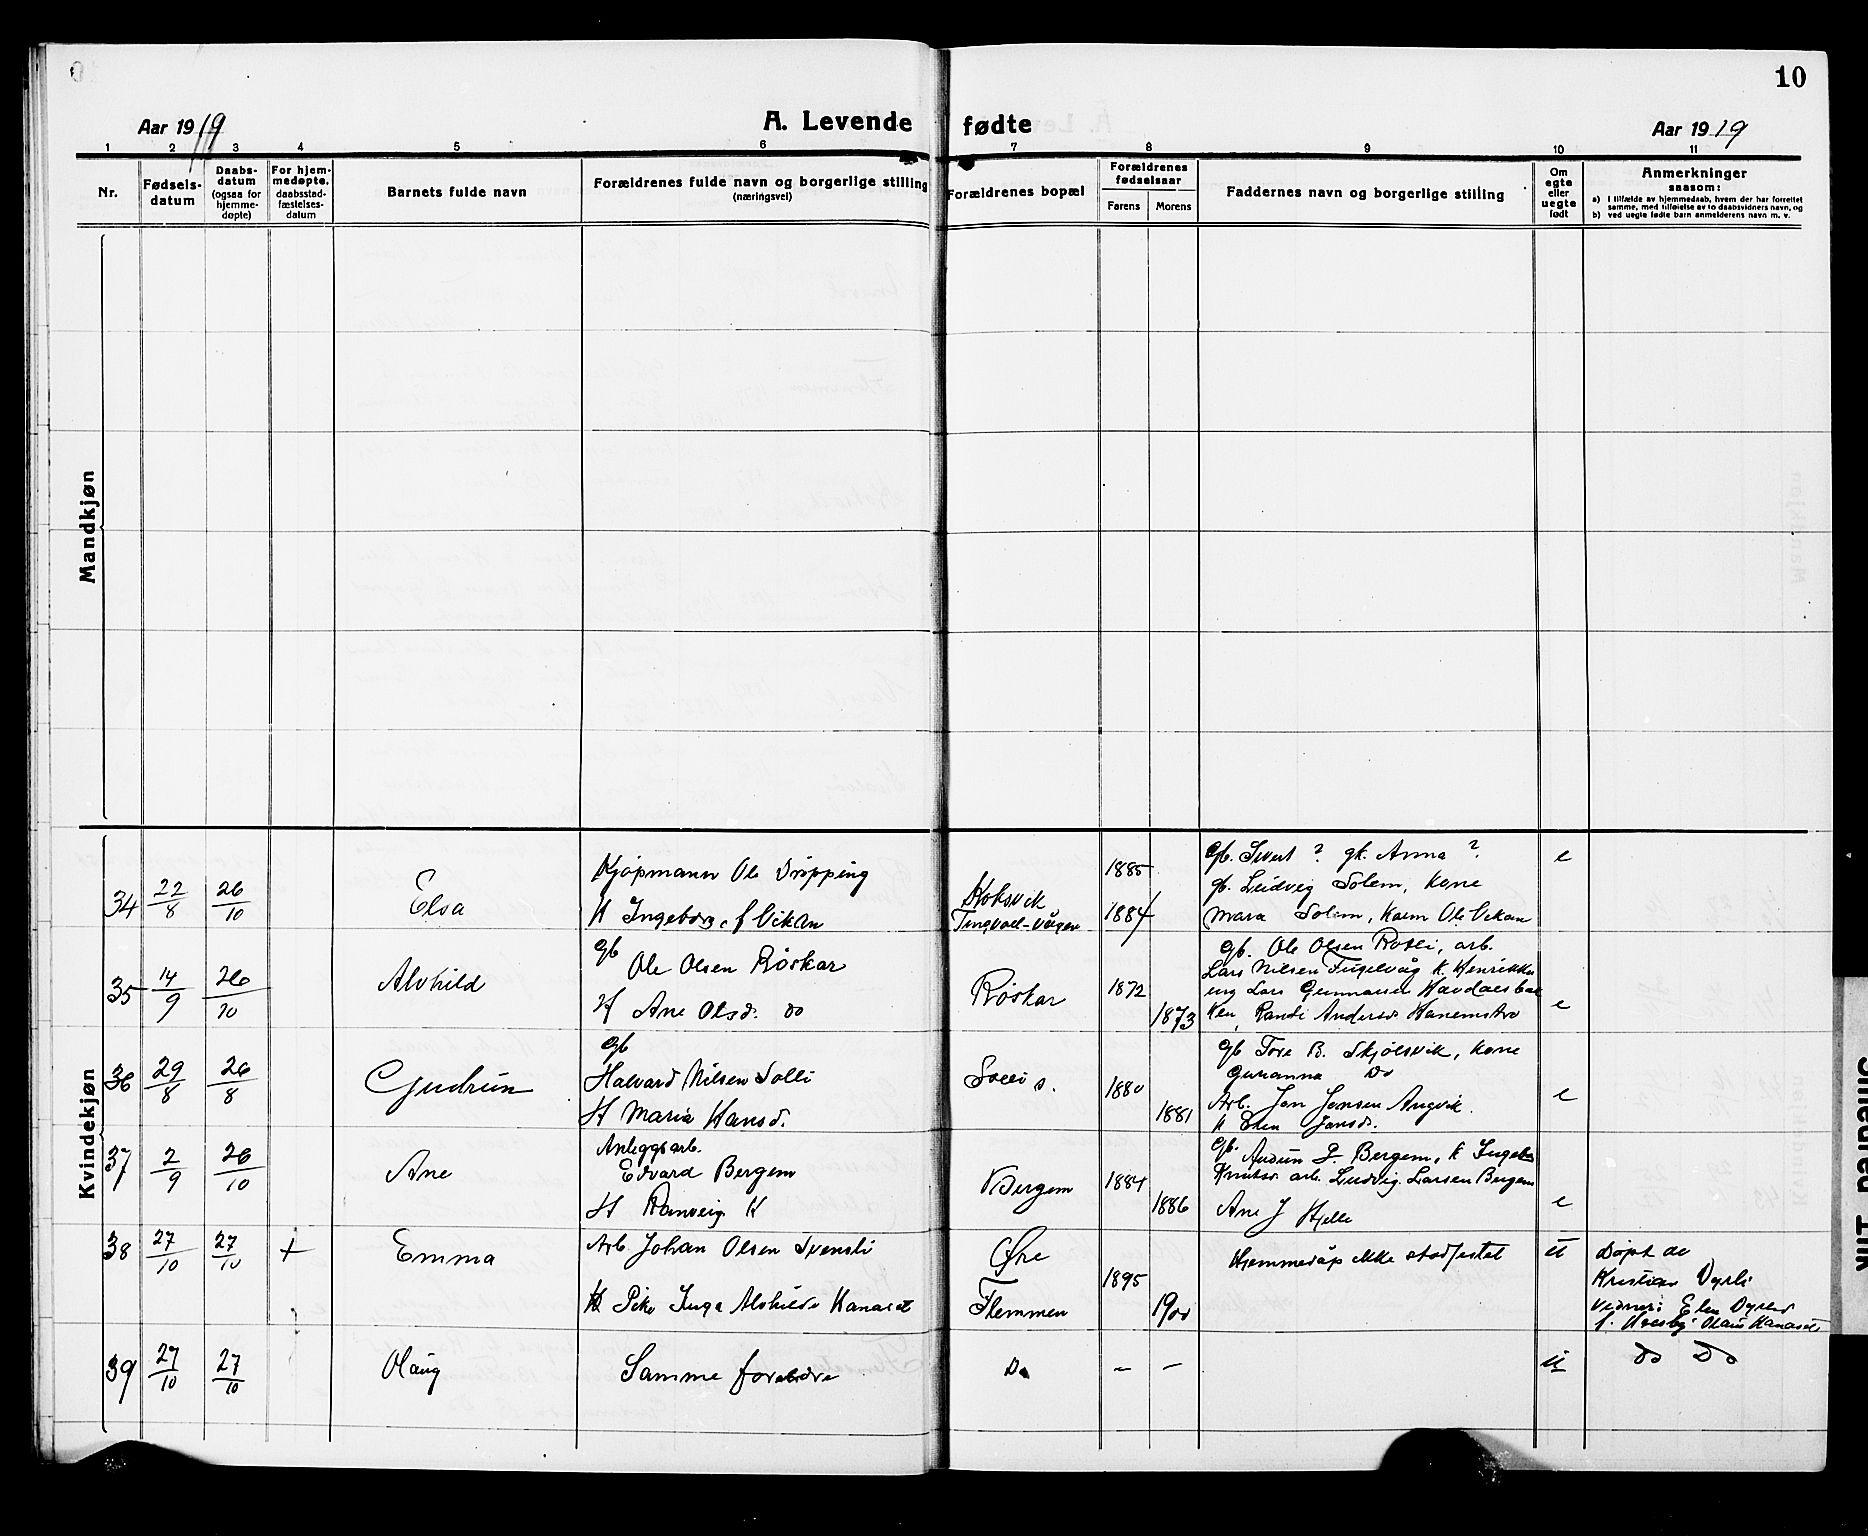 10
Aar 1919
A. Levende fødte
Aar 1919
1 2 3 4 5 6 7 8 9 10 11
Nr.
Fødsels-
datum
Daabs-
datum
(ogsaa for
hjemme-
døpte)
For hjem-
medøpte.
daabsstad-
fæstelses-
datum
Barnets fulde navn
Forældrenes fulde navn og borgerlige stilling
(næringsvei)
Forældrenes bopæl
Forældrenes
fødselsaar
Farens
Morens
Faddernes navn og borgerlige stilling
Om
egte
eller
uegte
født
Anmerkninger
saasom:
a) I tilfælde av hjemmedaab, hvem der har forrettet
samme, med tilføielse av to daabsvidners navn, og
b) ved uegte fødte barn anmelderens navn m. v.
Mandkjøn
Kvindekjøn
34
22/8
26/10
Elsa
Kjøpmann Ole Drøpping
H Ingeborg f Vikan
Koksvik
Tingvoll-vågen
1885
1884
gb. Sivert ? gk. Anna ?
gb. Ludvig Solem, Kone
Mara Solem, Ole Vikan
e
35
14/9
26/10
Alvhild
gb
Ole Olsen Røskar
H Ane Olsd. do
Røskar
1872
1873
gb. Ole Olsen arb.
Lars Nilsen Fugelvåg K. Henrikke
ung Lars Gunnarsen
Randi Andersd.
e
36
29/8
26/8
Gudrun
gb
Halvard Nilsen Solli
H Maria Hansd.
Solli s.
1880
1881
gb Tore B. Skjølsvik, Kone
Gurianna Do
Arb. Jon Jonsen Angvik.
K Elen Jonsd.
e
37
2/9
26/10
Ane
Anleggsarb.
Edvard Bergem
H Ranveig K
Bergem
1884
1886
gb. Audun J. Bergem, K Ingebor
Knutsd. arb. Ludvig Larsen Bergem
Ane J Hjelle
e
38
27/10
27/10
+
Emma
Arb. Johan Olsen Svensli
Pike Inga Alvhilde Kanaset
Øre
Flemmen
1895
1900
Hjemmedåp ikke stadfestet
u
Døpt av
Kristian Dyrli
Vidner: Elen
Olaus Kanaset
39
27/10
27/10
Olaug
Samme foreldre
Do
– –
u
Do Do